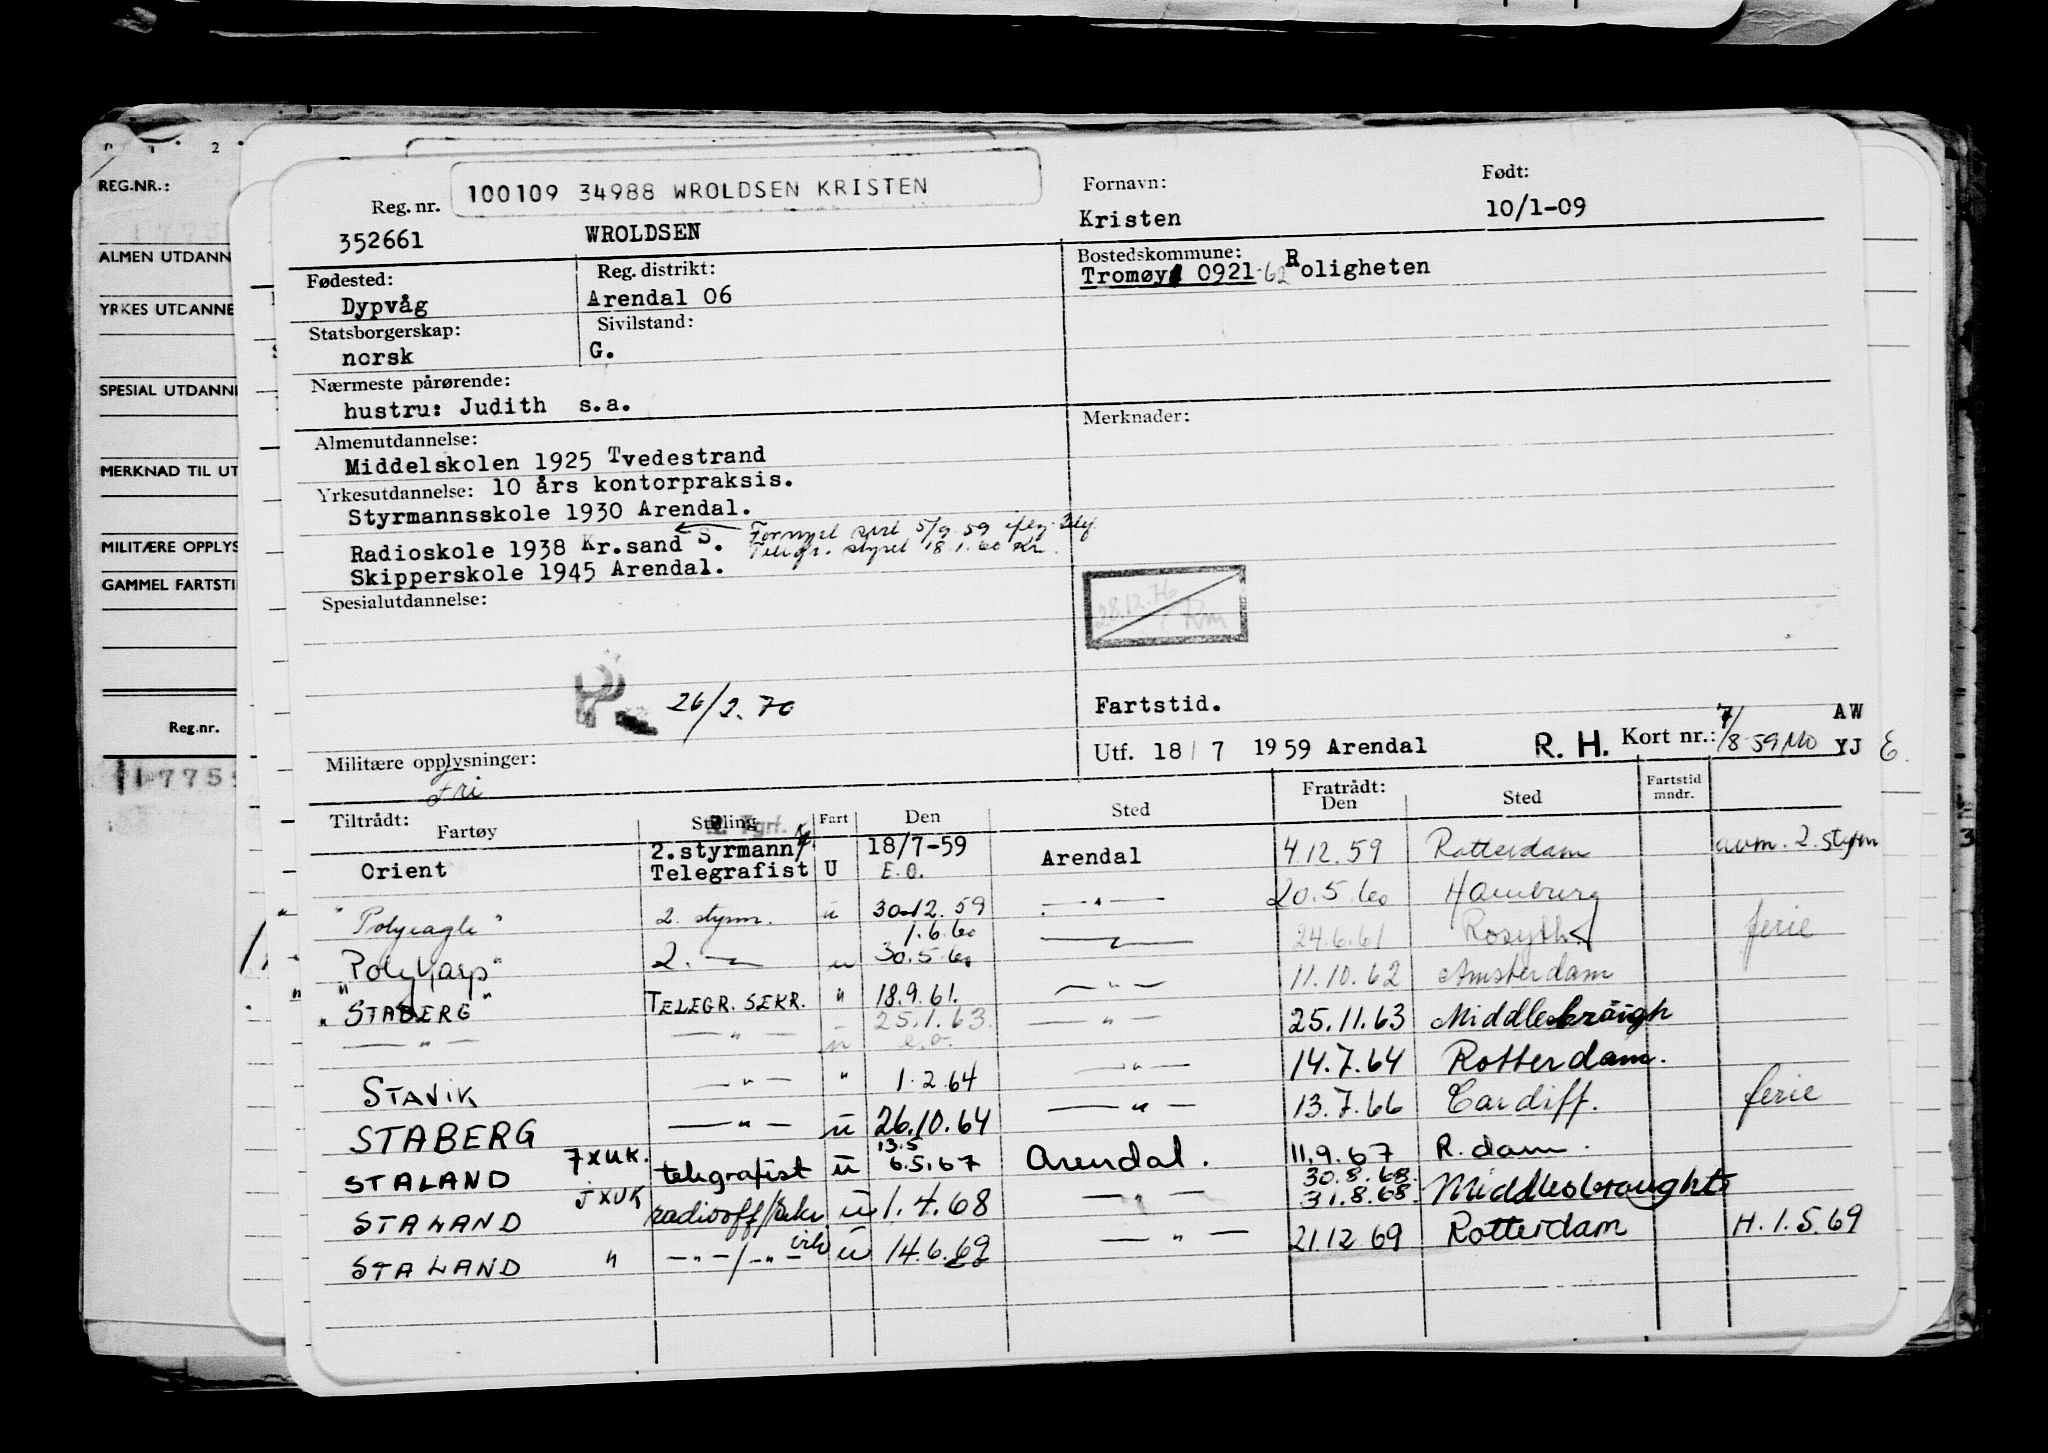 REG.NR.:
ALMEN UTDANN
YRKES UTDANNE
SPESIAL UTDANNE
MERKNAD TIL UT
MILITÆRE OPPLYS
GAMMEL FARTSTI
Reg.nr.
Reg. nr. 100109 34988 WROLDSEN KRISTEN
Fornavn: Født:
352661 WROLDSEN Kristen 10/1-09
Fødested: Reg. distrikt: Bostedskommune:
Dypvåg Arendal 06 Tromøy 0921-62 Roligheten
Statsborgerskap: Sivilstand:
norsk G.
Nærmeste pårørende:
hustru: Judith s.a.
Almenutdannelse: Merknader:
Middelskolen 1925 Tvedestrand
Yrkesutdannelse: 10 års kontorpraksis.
Styrmannsskole 1930 Arendal.
Radioskole 1938 Kr.sand S. Fornyet sert 5/9.59
Telegr. styret 18.1.60 Kr.
Skipperskole 1945 Arendal.
Spesialutdannelse:
28.12.76
Rm
26/2.70
Fartstid.
Utf. 18/7 1959 Arendal R. H. Kort nr.: 7/8-59 AW YJ E.
Militære opplysninger:
Fri
Tiltrådt: Fartøy Stilling Fart Den Sted Fratrådt: Den Sted Fartstid mndr.
Orient 2.styrmann/ Telegrafist U 18/7-59 E.O. Arendal 4.12.59 Rotterdam avm. 2. styrm
"Polyeagle" 2. styrm. u 30.12.59 — " — 20.5.60 Hamburg
1.6.60
"Polyharp" 2. — " — u 30.5.60 — " — 24.6.61 Rosyth ferie
"STABERG" TELEGR. SEKR. " 18.9.61. — " — 11.10.62 Amsterdam
— " — — " — u 25.1.63. e.o. — " — 25.11.63 Middlesbraugh
STAVIK — " — " 1.2.64 — " — 14.7.64 Rotterdam.
STABERG — " — u 26.10.64 — " — 13.7.66 Cardiff. ferie
STALAND JXUK. telegrafist u 13.5 6.5.67 Arendal. 11.9.67 R.dam.
STALAND JXUK radiooff/sekr. u 1.4.68 — " — 30.8.68. 31.8.68. Middlesbraught
STALAND " — " — / — " — u 14.6.69 — " — 21.12.69 Rotterdam H.1.5.69